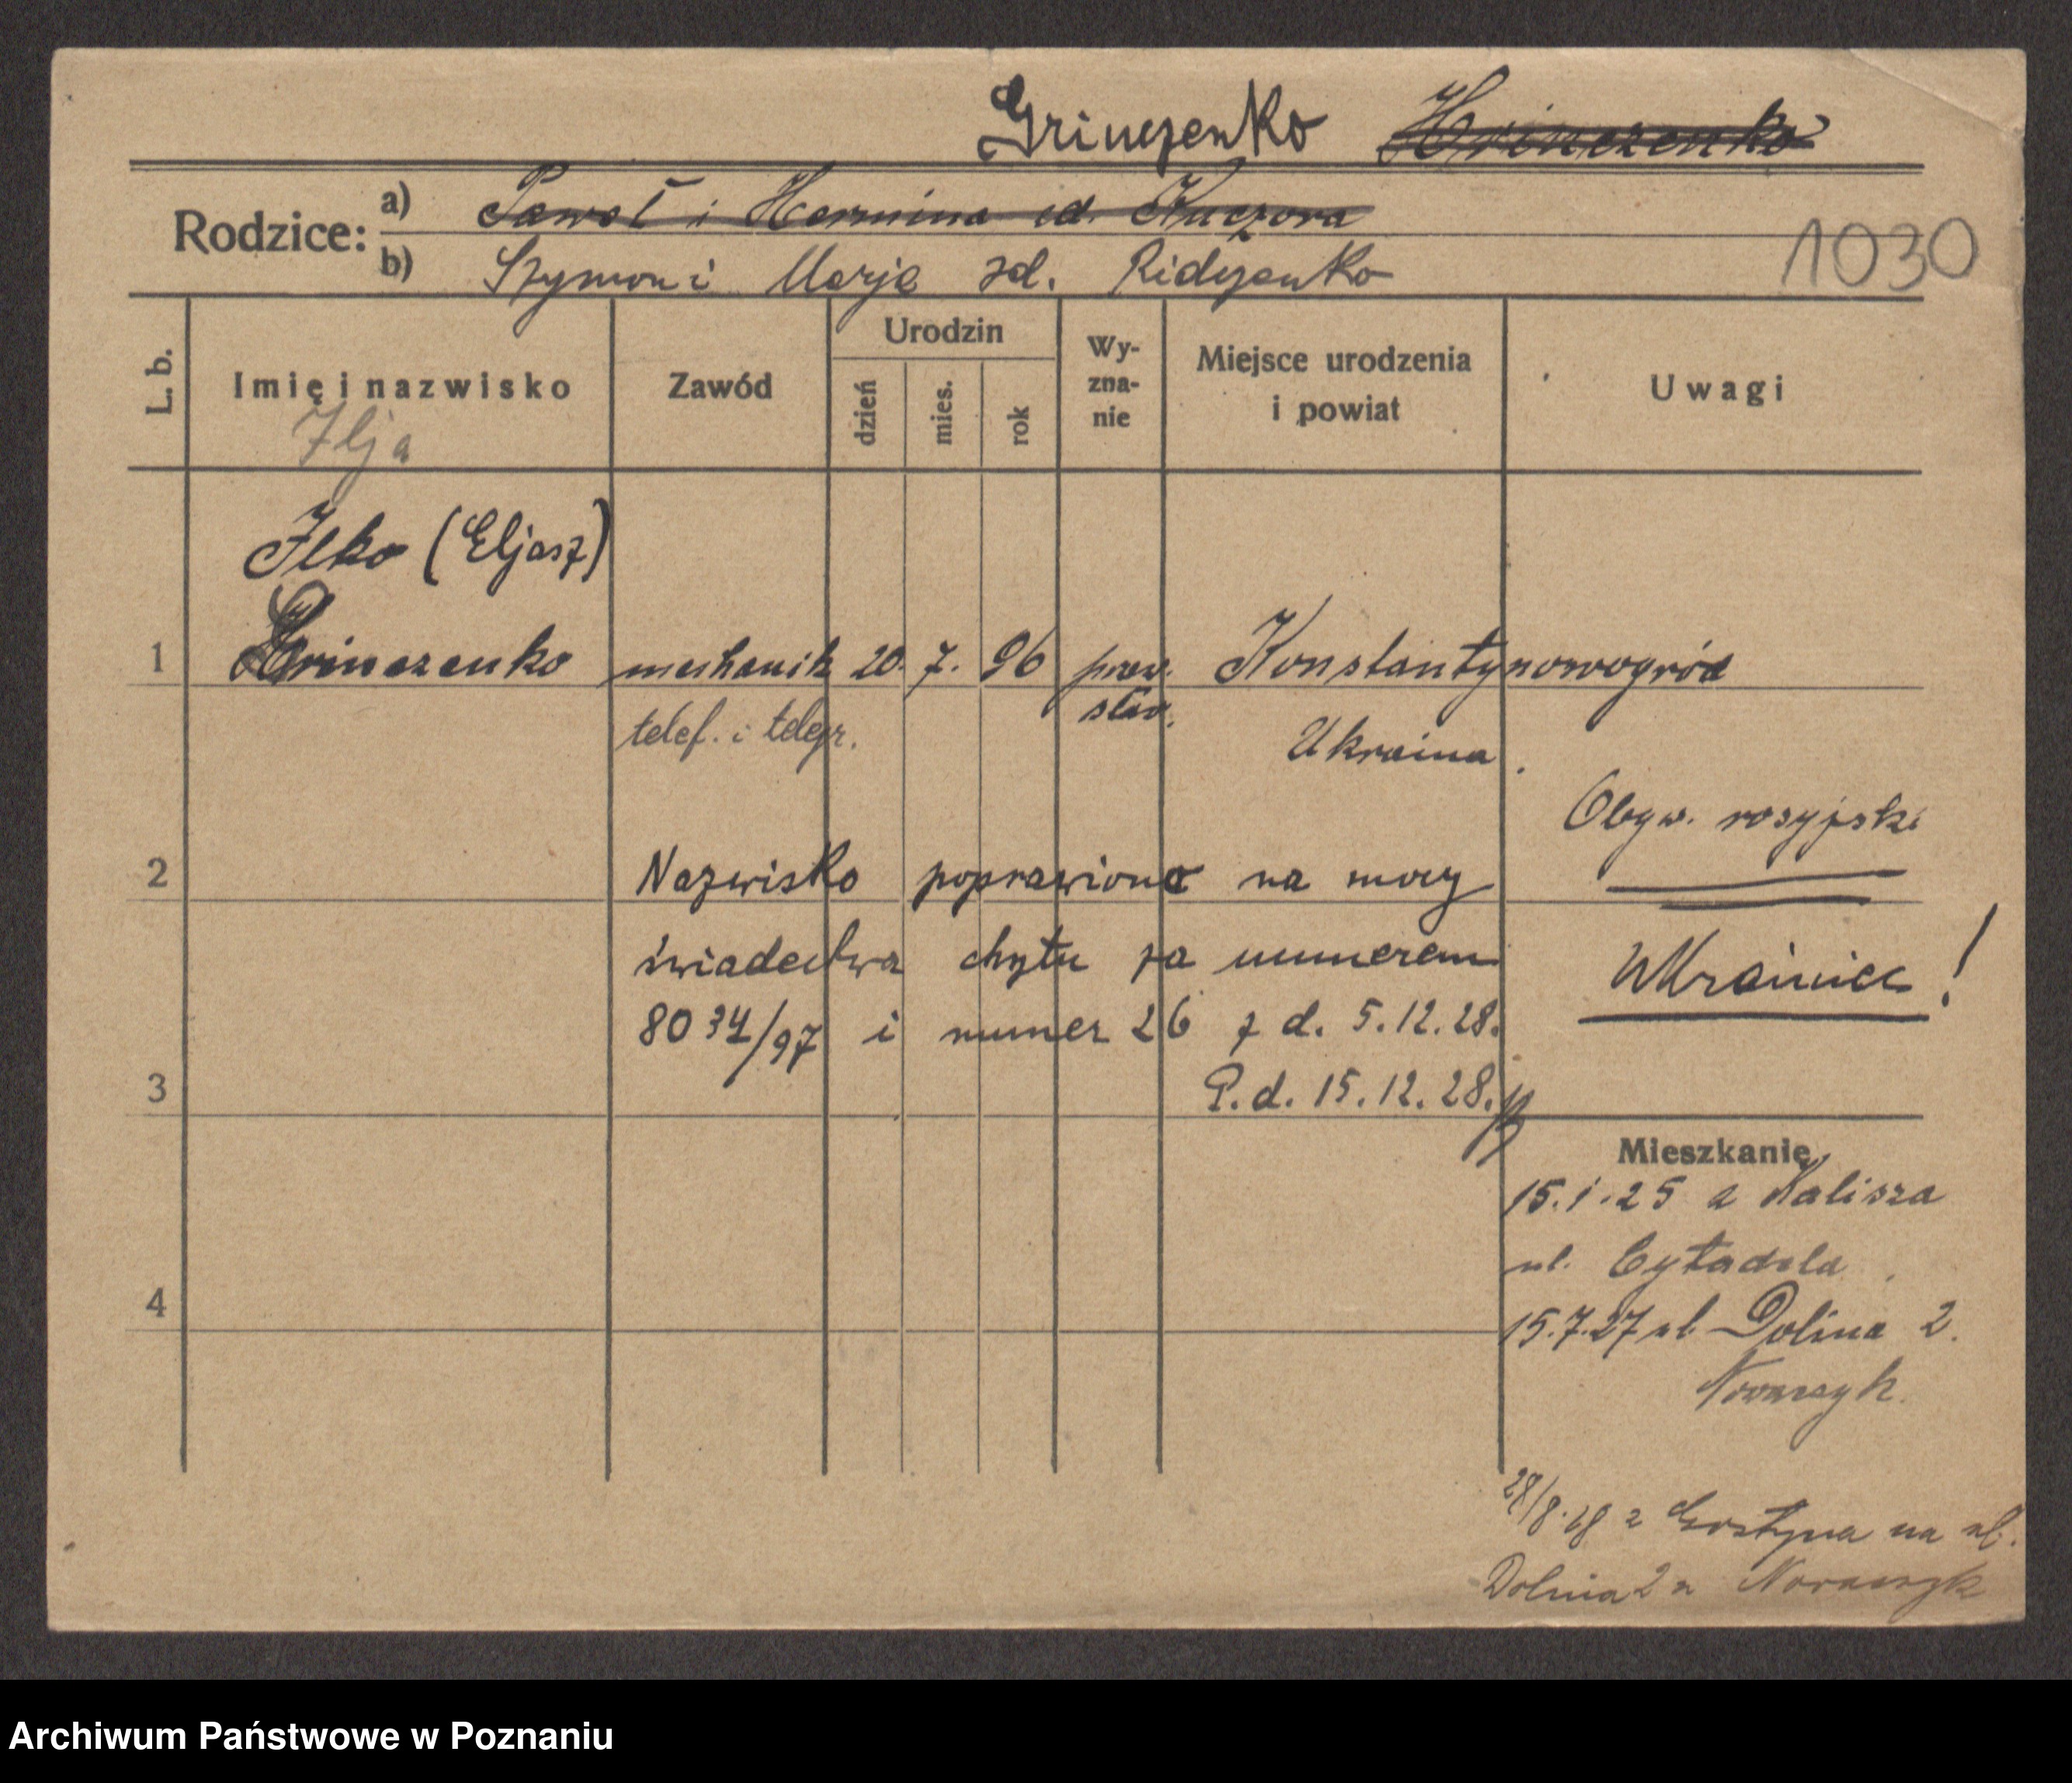 Grinczenko Hrinczenko
Rodzice: a) Paweł i Hermina zd. Kuczora
b) Szymon i Marja zd. Ridczenko
1030
L. b.
Imię i nazwisko
Ilja
Zawód
Urodzin
dzień
mies.
rok
Wy-
zna-
nie
Miejsce urodzenia
i powiat
Uwagi
Ilko (Eljasz)
1 Grinczenko mechanik 20. 7. 96 praw. Konstantynowogród
telef. i telegr. sław. Ukraina
Obyw. rosyjski
2 Nazwisko poprawiono na mocy
świadectwa chrztu za numerem
Ukrainiec!
8034/97 i numer 26 z d. 5.12.28.
3 P. d. 15.12.28.
Mieszkanie
15.1.25 z Kalisza
ul. Cytadela
4 15.7.27 ul. Dolina 2.
Nowaczyk.
28/8.28 z Gostynia na ul.
Dolina 2 Nowaczyk
Archiwum Państwowe w Poznaniu